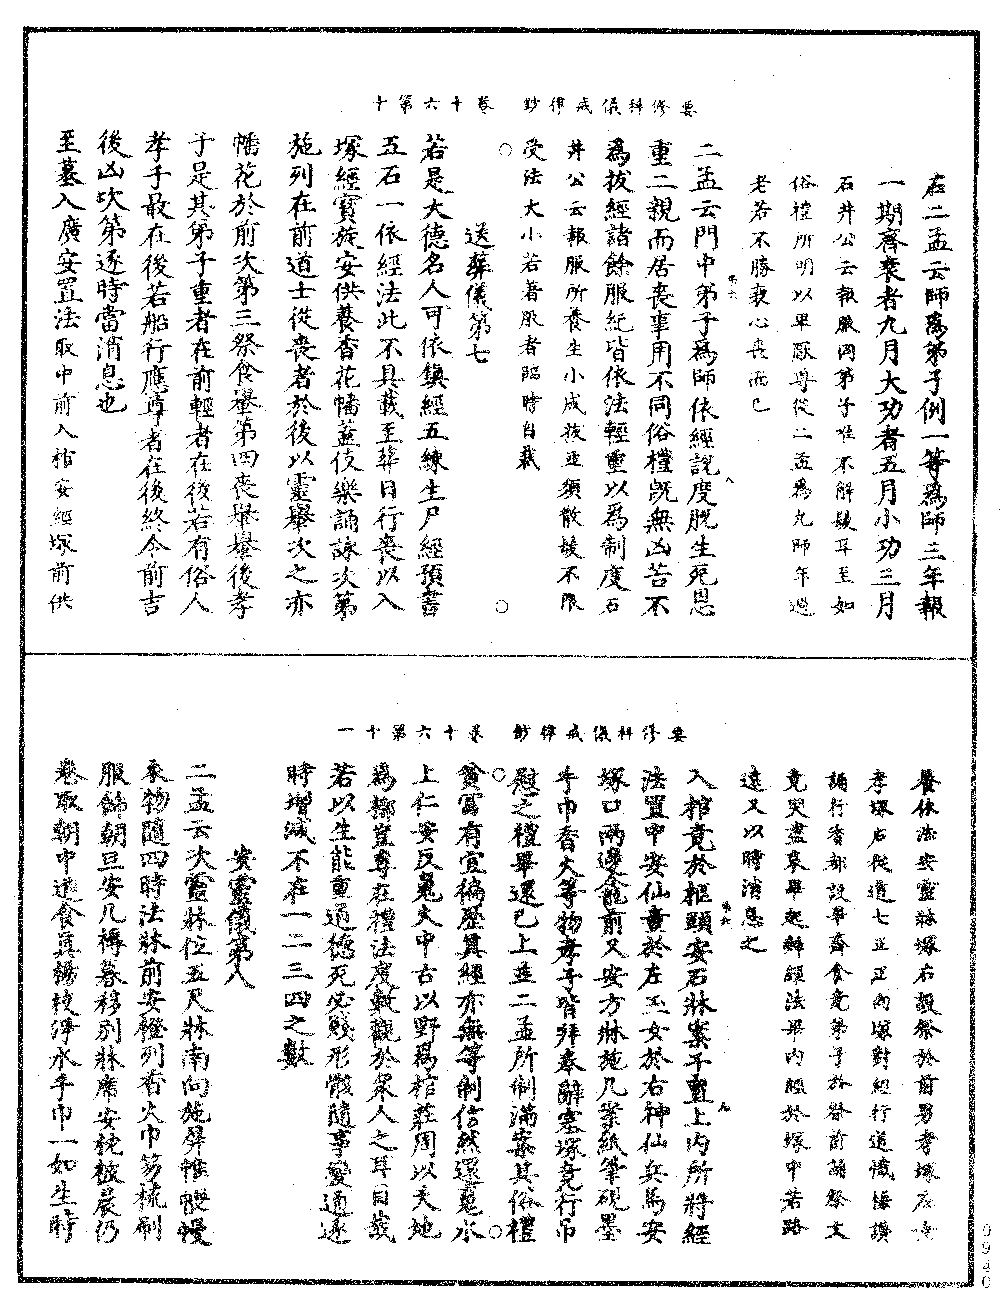 要修科儀戒律鈔　卷十六第十
右二孟云師爲弟子例一等爲師三年報
一期齊衰者九月大功者五月小功三月
石井公云報服同弟子唯不解髮耳至如
俗禮所明以卑厭尊從二孟爲允師年過
老若不勝衰心喪而已
二孟云門中弟子爲師依經說度脫生死恩
重二親而居喪事用不同俗禮既無凶苦不
爲拔經諸餘服紀皆依法輕重以爲制度石
井公云報服所養生小成拔並須散披不限
受法大小若著服者臨時自裁
送葬儀第七
若是大德名人可依鎮經五練生尸經預書
五石一依經法此不具載至葬日行喪以入
塚經寶旋安供養香花幡蓋伎樂誦詠次第
施列在前道士從喪者於後以靈轝次之亦
幡花於前次第三祭食轝第四喪轝轝後孝
子是其弟子重者在前輕者在後若有俗人
孝子最在後若船行應尊者在後終令前吉
後凶次第逐時當消息也
至墓入廣安置法取中前入棺安經塚前供
要修科儀戒律鈔　卷十六第十一
養依法安靈牀塚右設祭於前男孝塚左
孝塚右從道七正正向塚對經行道懺悔讚
誦行香都設畢齋食竟弟子於祭前讀祭文
竟哭盡哀畢起辭經法畢內經於塚中若路
遠又以時消息之
入棺竟於柩頭安石牀案子置上內所將經
法置中安仙童於左玉女於右神仙兵馬安
塚口兩邊龕前又安方牀施几案紙筆硯墨
手巾香火等物孝子皆拜奉辭塞塚竟行弔
慰之禮畢還已上並二孟所制滿案其俗禮
貧富有宜徧歷眞經亦無等制信然還
上仁安反 中古以野爲棺莊周以天地
爲槨豈專在禮法度數觀於眾人之耳目哉
若以生能重道德死必賤形骸隨事變通逐
時增減不在一二三四之數
安靈儀第八
二孟云次靈牀位五尺牀南向施屏帷帳幔
衣物隨四時法牀前安鐙列香火巾笏梳刷
服飾朝旦安几褥暮移別牀席安枕被晨仍
卷取朝中進食眞楊枝淨水手巾一如生時
0940